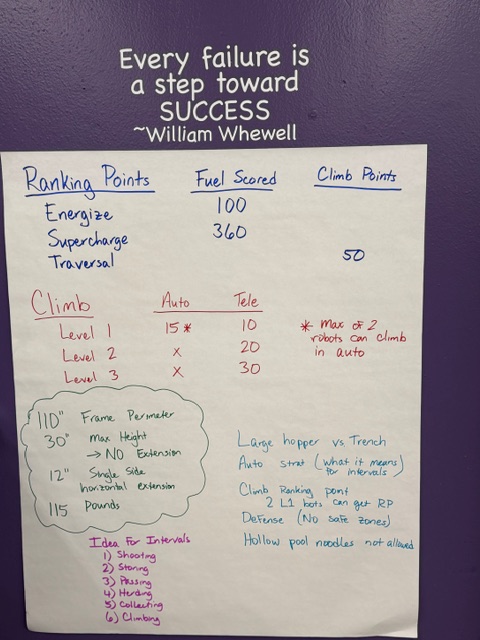 Every failure is
a step toward
SUCCESS
~William Whewell
Ranking Points Fuel Scored Climb Points
Energize 100
Supercharge 360
Traversal 50
Climb Auto Tele
Level 1 15* 10
Level 2 x 20
Level 3 x 30
* Max of 2
robots can climb
in auto
110" Frame Perimeter
30" Max Height
→ NO Extension
12" Single Side
horizontal extension
115 Pounds
Large hopper vs. Trench
Auto strat (what it means
for intervals)
Climb Ranking point
2 L1 bots can get RP
Defense (No safe zones)
Hollow pool noodles not allowed
Idea For Intervals
1) Shooting
2) Storing
3) Passing
4) Herding
5) Collecting
6) Climbing